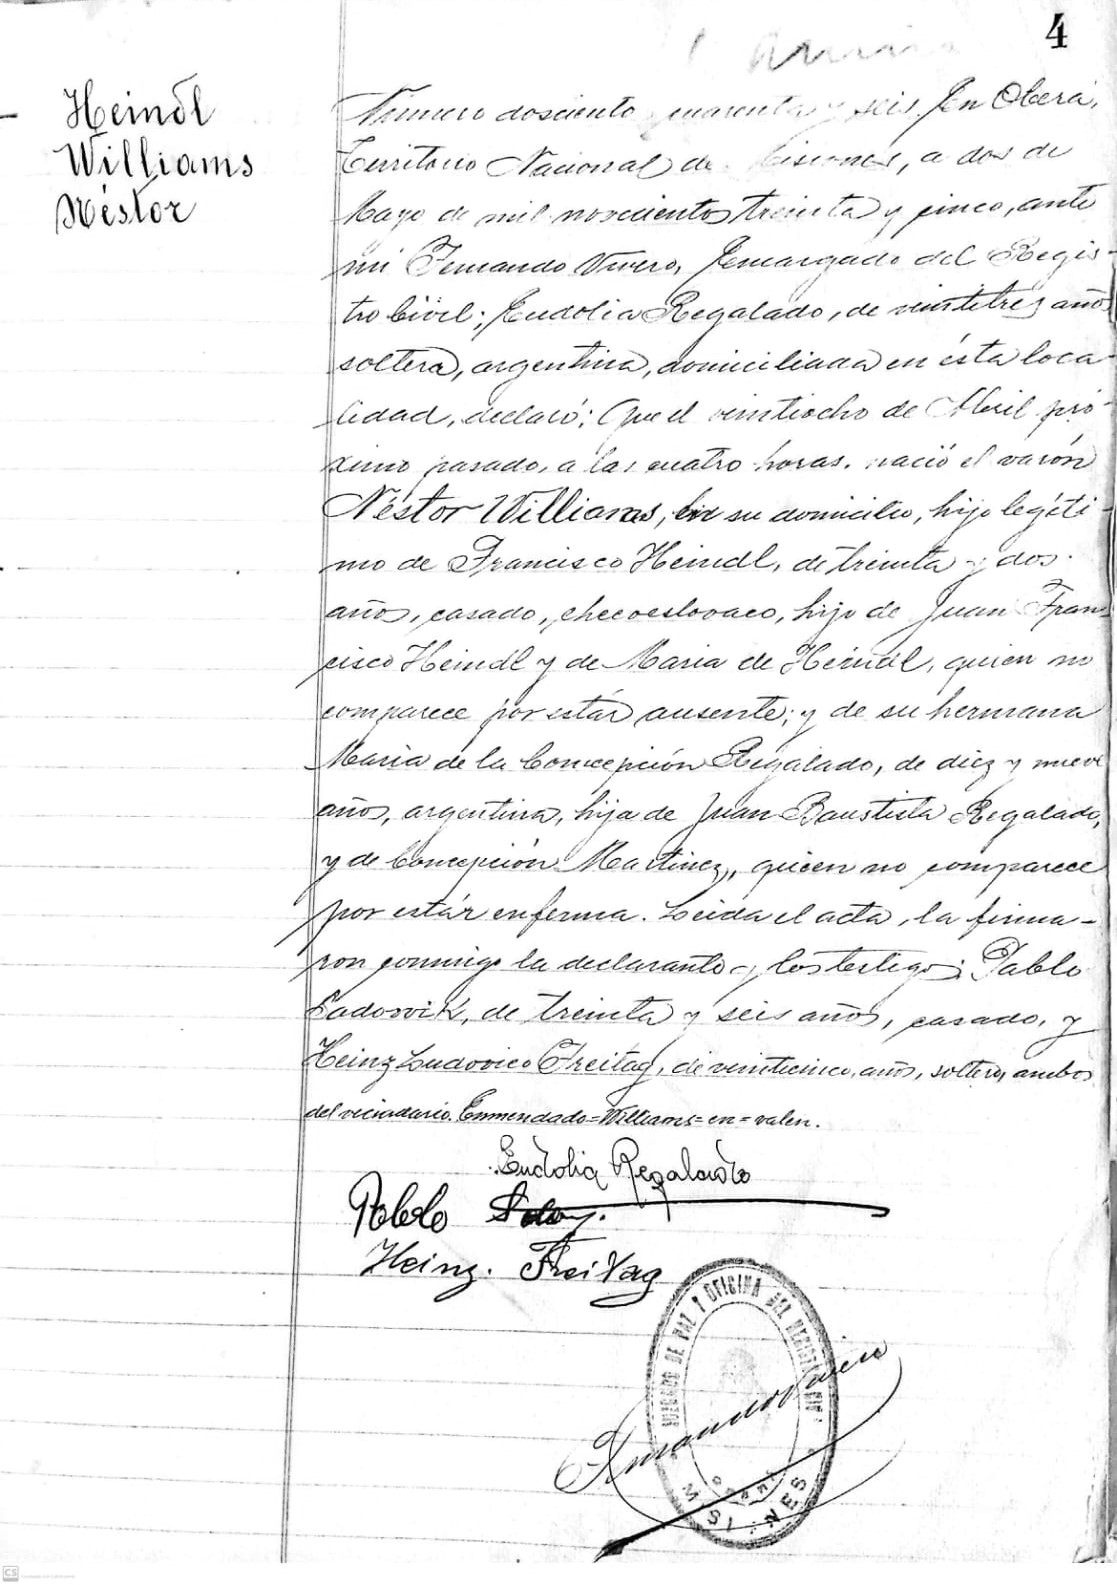 4
Heindl
Williams
Néstor
Número doscientos cuarenta y seis. En Oberá,
Territorio Nacional de Misiones, a dos de
Mayo de mil novecientos treinta y cinco, ante
mi Fernando Vivero, Encargado del Regis-
tro Civil; Eudolia Regalado, de veintitres años
soltera, argentina, domiciliada en ésta loca-
lidad, declaró: Que el veintiocho de Abril pró-
ximo pasado, a las cuatro horas, nació el varón
Néstor Williams, en su domicilio, hijo legíti-
mo de Francisco Heindl, de treinta y dos
años, casado, checoeslovaco, hijo de Juan Fran-
cisco Heindl y de Maria de Heindl, quien no
comparece por estár ausente; y de su hermana
Maria de la Concepción Regalado, de diez y nueve
años, argentina, hija de Juan Bautista Regalado,
y de Concepción Martinez, quien no comparece
por estár enferma. Leida el acta, la firma-
ron conmigo la declarante y los testigos: Pablo
de treinta y seis años, casado, y
Heinz Ludovico Freitag, de veinticinco años, soltero, ambos
del vecindario. Enmendado=Williams=en=valen.
Eudolia Regalado
Pablo
Heinz. Freitag
JUZGADO DE PAZ Y OFICINA DEL REGISTRO CIVIL
OBERÁ
MISIONES
CS